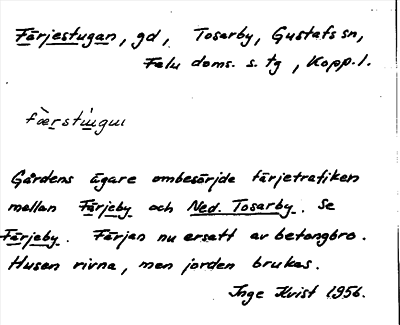 Färjestugan, gd, Tosarby, Gustafs sn,
Falu doms. s. tg, Kopp. l.
Gårdens ägare ombesörjde färjetrafiken
mellan Färjeby och Ned. Tosarby. Se
Färjeby. Färjan nu ersatt av betongbro.
Husen rivna, men jorden brukas.
Inge Kvist 1956.